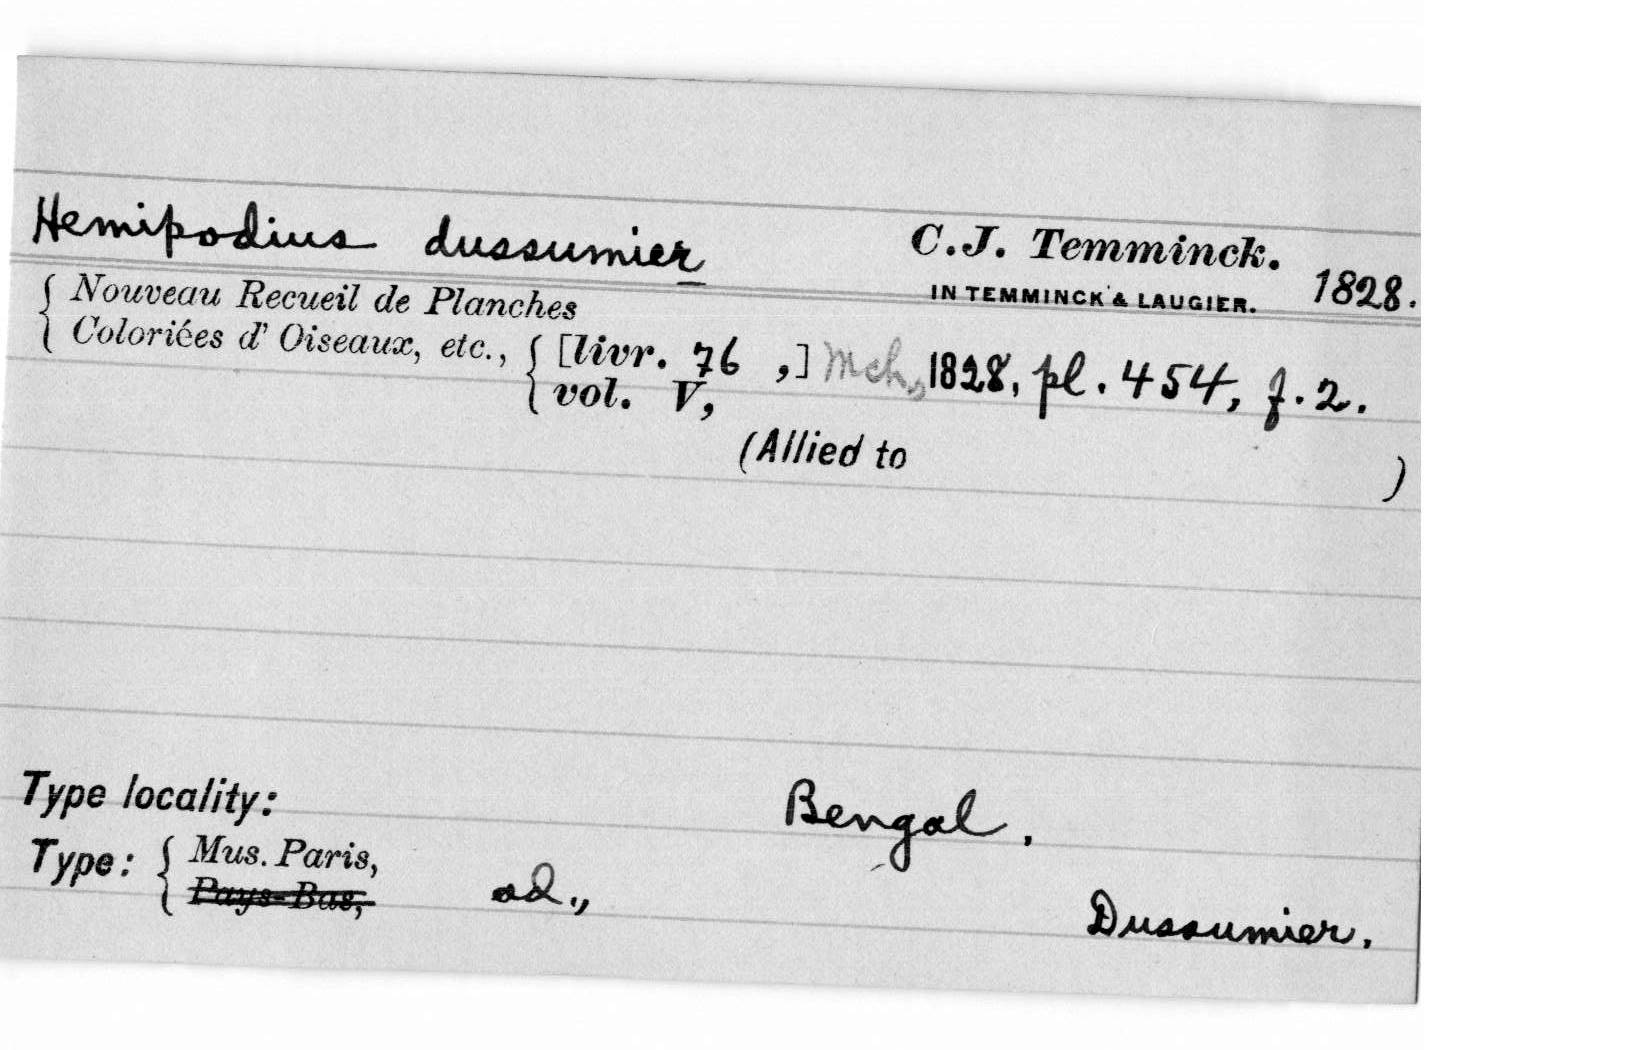 Hemipodius dussumier C.J. Temminck.
IN TEMMINCK & LAUGIER. 1828.
{ Nouveau Recueil de Planches
Coloriées d' Oiseaux, etc., { [livr. 76 ,] Mch, 1828, pl. 454, f. 2.
vol. V,
(Allied to )
Type locality: Bengal.
Type: { Mus. Paris,
Pays-Bas, ad., Dussumier.